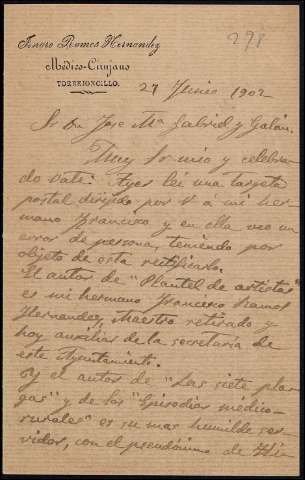 Genaro Ramos Hernandez
Médico-Cirujano
TORREJONCILLO.
298
27 Junio 1902
Sr Dn Jose Mª Gabriel y Galán.
Muy Sr mio y celebra-
do vate: Ayer leí una tarjeta
postal dirigida por V á mi her-
mano Francisco y en ella veo un
error de persona, teniendo por
objeto de esta rectificarlo.
El autor de "Plantel de artistas"
es mi hermano Francisco Ramos
Hernandez, Maestro retirado y
hoy auxiliar de la secretaría de
este Ayuntamiento.
Y el autor de "Las siete pla-
gas" y de los "Episodios médico-
rurales" es su mas humilde ser-
vidor, con el pseudónimo de